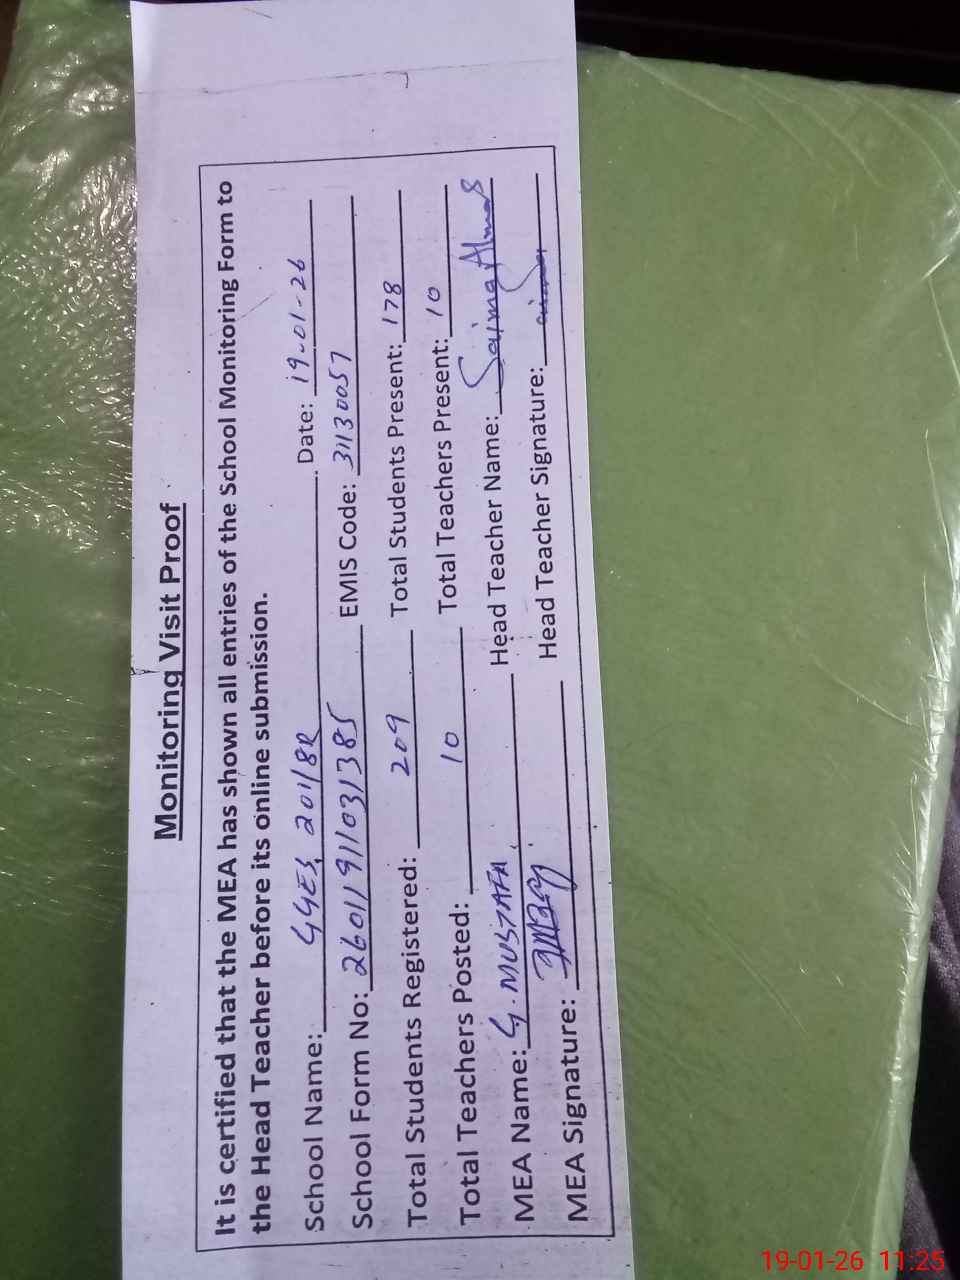 Monitoring Visit Proof
It is certified that the MEA has shown all entries of the School Monitoring Form to
the Head Teacher before its online submission.
School Name: GGES, 201/8R Date: 19-01-26
School Form No: 26011911031385 EMIS Code: 31130057
Total Students Registered: 209 Total Students Present: 178
Total Teachers Posted: 10 Total Teachers Present: 10
MEA Name: G. MUSTAFA Head Teacher Name: Saima Almas
MEA Signature: Head Teacher Signature:
19-01-26 11:25